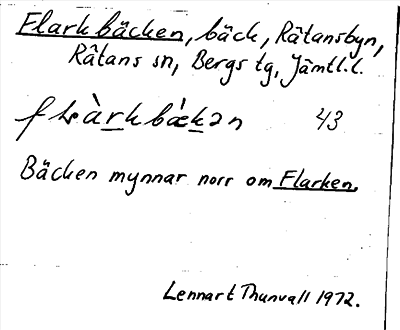 Flarkbäcken, bäck, Rätansbyn,
Rätans sn, Bergs tg, Jämtl.l.
43
Bäcken mynnar norr om Flarken.
Lennart Thunvall 1972.